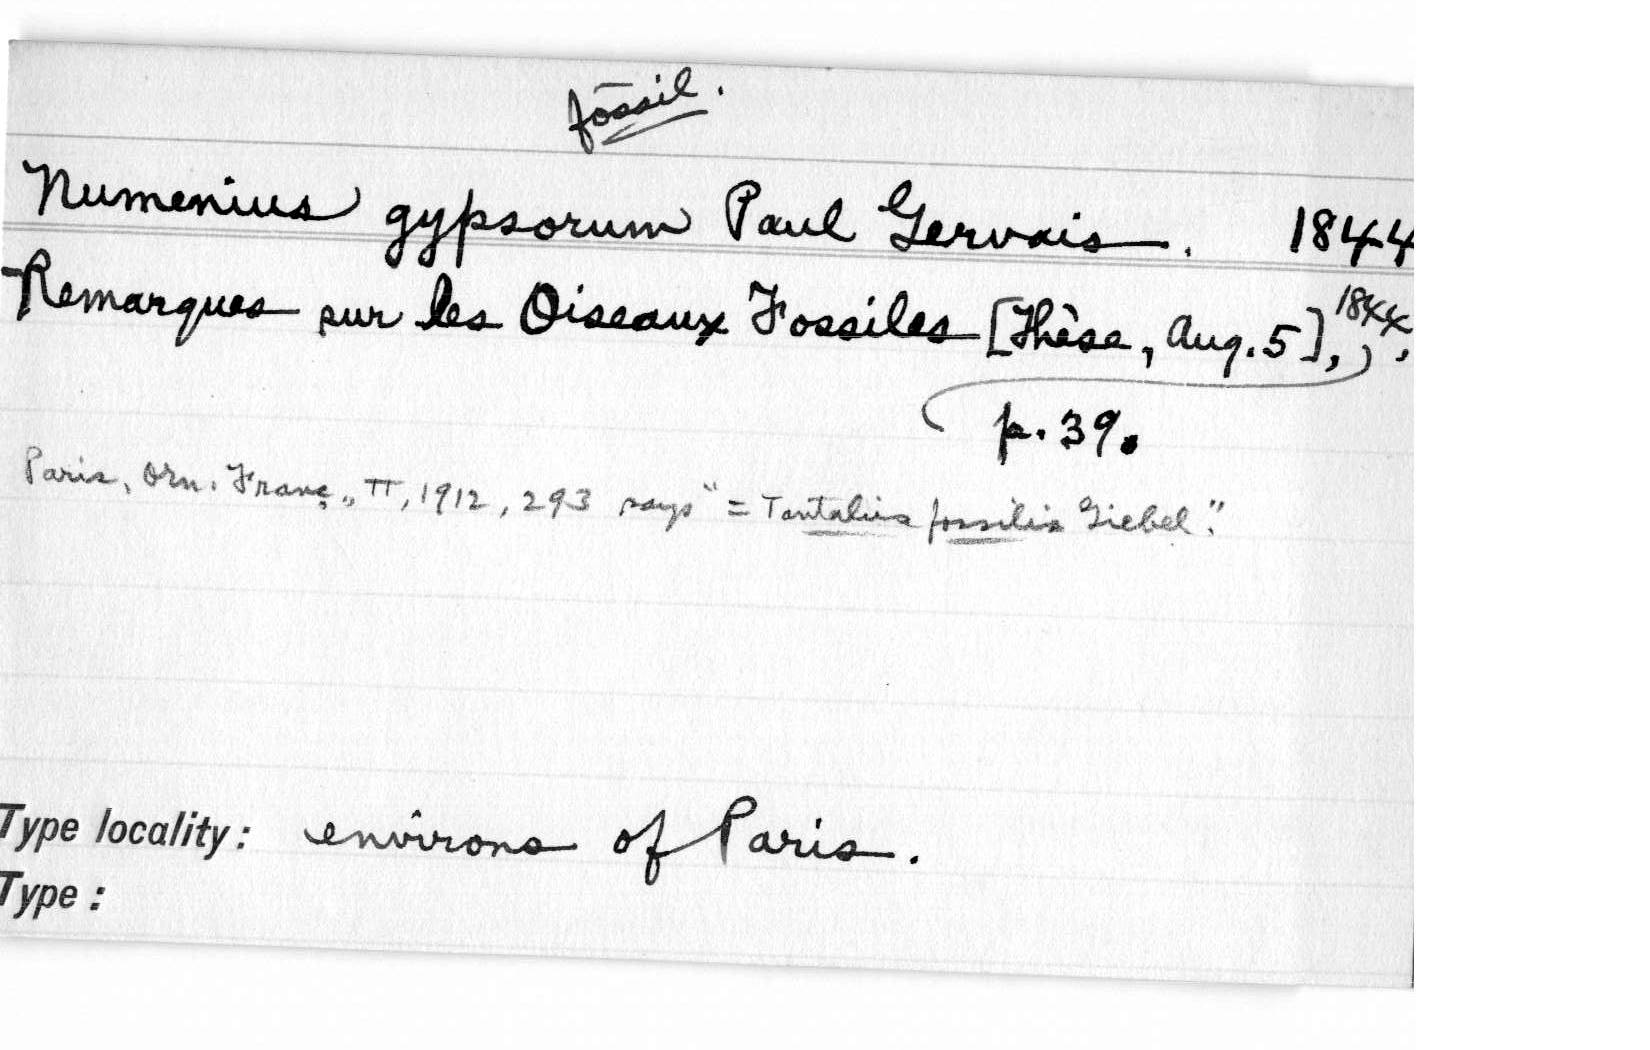 fossil.
Numenius gypsorum Paul Gervais. 1844
Remarques sur les Oiseaux Fossiles [Thèse, Aug. 5], 1844,
p. 39.
Paris, Orn. Franç., II, 1912, 293 says "= Tantalus fossilis Giebel."
Type locality: environs of Paris.
Type: